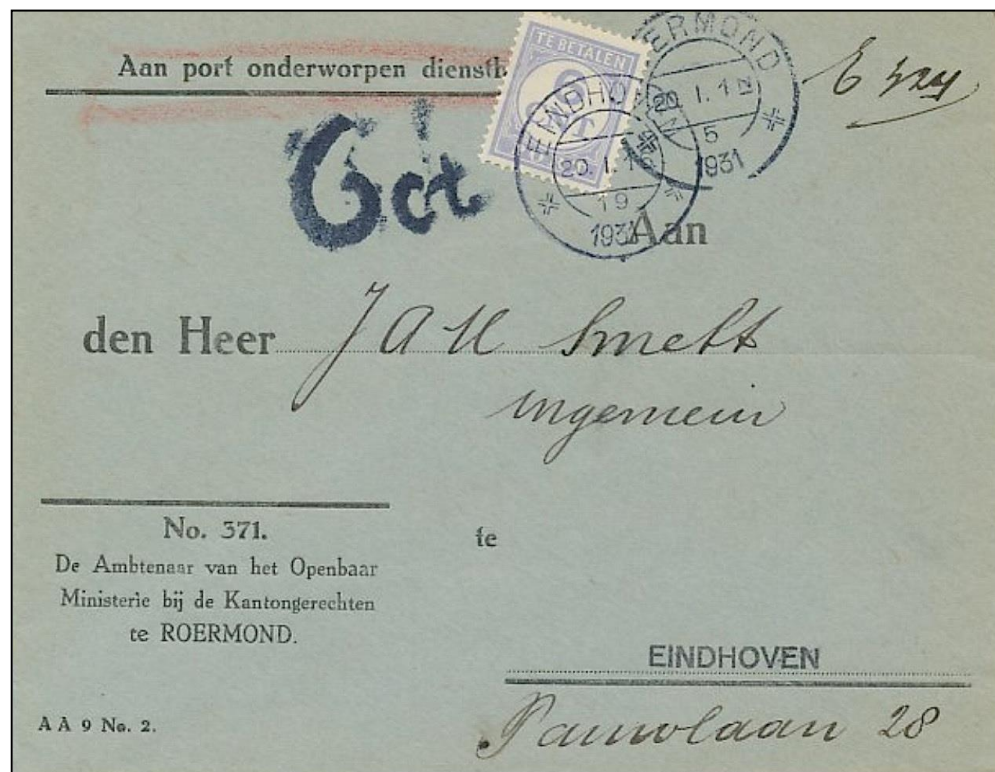 Aan port onderworpen diensth
TE BETALEN
ERMOND
20. I. 1
5
1931
6 ct
EINDHOVEN
20. I. 1
19
1931
Aan
den Heer J A Smett
te
No. 371.
De Ambtenaar van het Openbaar
Ministerie bij de Kantongerechten
te ROERMOND.
EINDHOVEN
28
A A 9 No. 2.